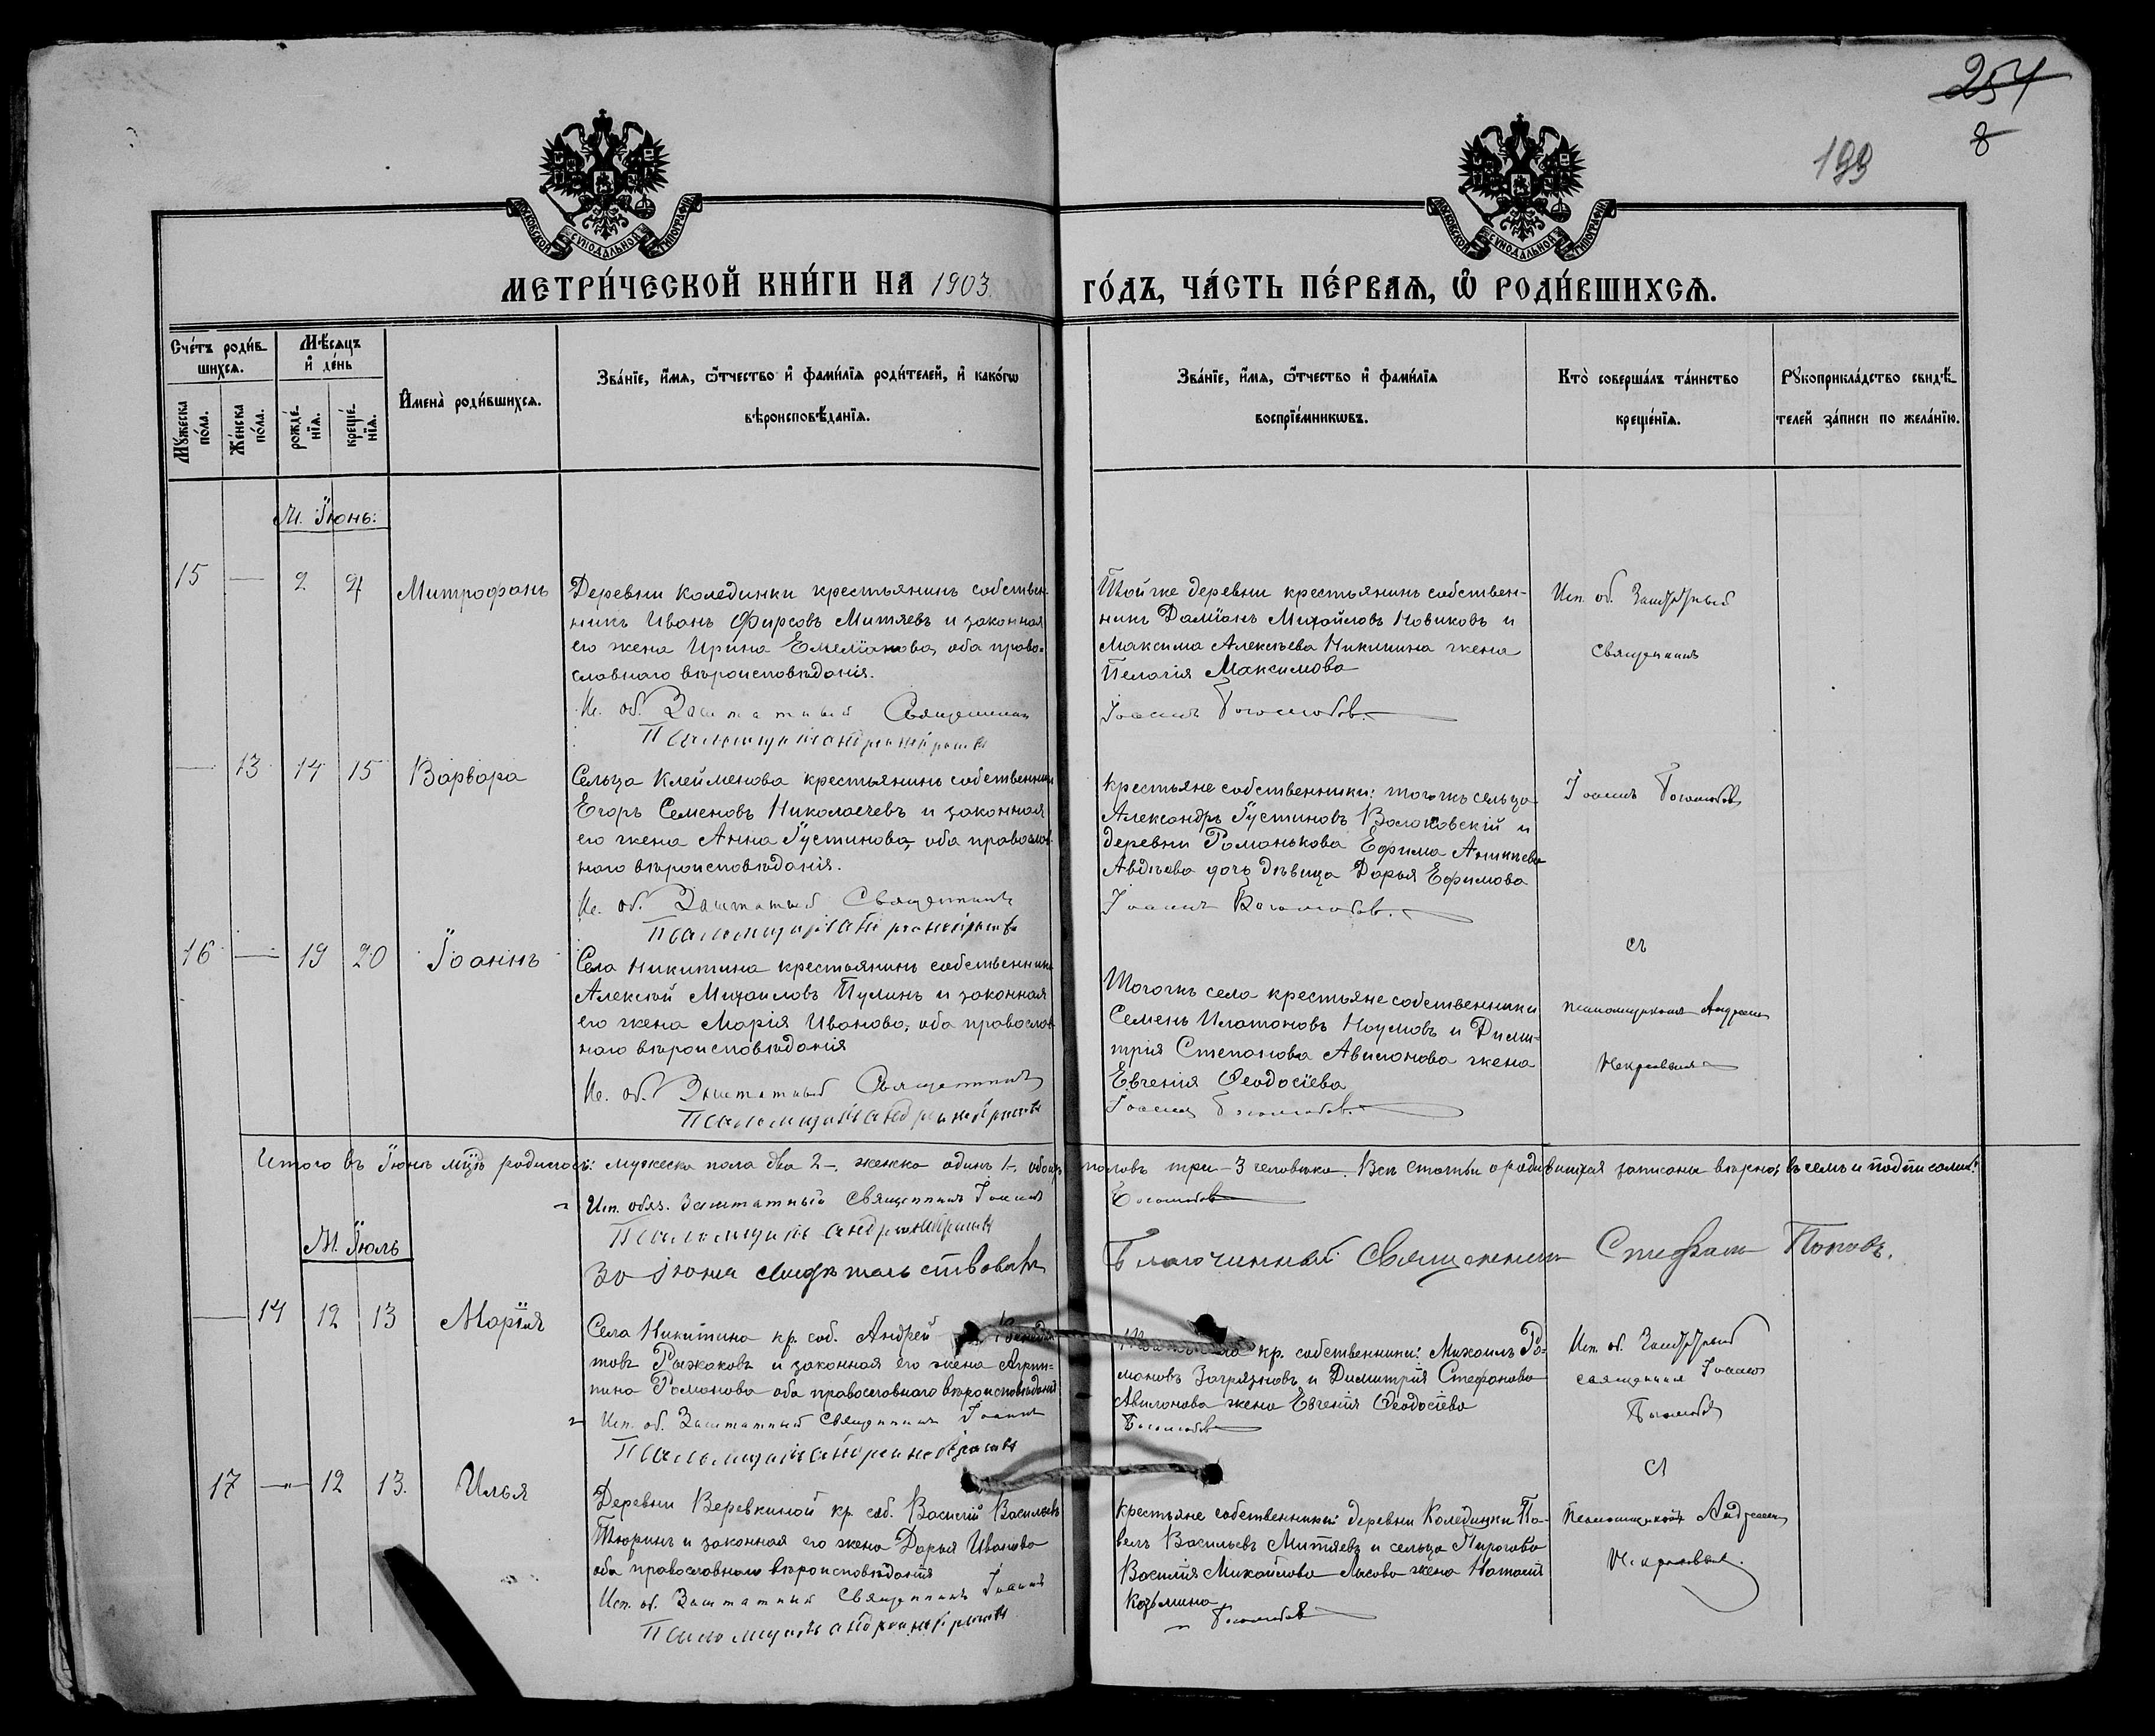 254
8
199
МОСКОВСКОЙ СѴНОДАЛЬНОЙ ТИПОГРАФІИ
МОСКОВСКОЙ СѴНОДАЛЬНОЙ ТИПОГРАФІИ
МЕТРИ́ЧЕСКОЙ КНИ́ГИ НА 1903 ГО́ДЪ, ЧА́СТЬ ПЕ́РВАѦ, Ѽ РОДИ́ВШИХСѦ.
Сче́тъ роди́в-
шихсѧ.
Мꙋ́жеска по́ла.
Же́нска по́ла.
Мѣ́сѧцъ
и҆ де́нь
рожде́-
нїѧ.
креще́-
нїѧ.
И҆мена̀ роди́вшихсѧ.
Зва́нїе, и҆́мѧ, ѻ҆́тчество и҆ фами́лїѧ роди́телей, и҆ како́гѡ
вѣроисповѣ́данїѧ.
Зва́нїе, и҆́мѧ, ѻ҆́тчество и҆ фами́лїѧ
воспрїе́мникѡвъ.
Кто̀ соверша́лъ та́инство
креще́нїѧ.
Рꙋкоприкла́дство свидѣ́-
телей за́писи по жела́нїю.
М. Іюнь:
15 — 2 4 Митрофанъ
Деревни Колединки крестьянинъ собствен-
никъ Иванъ Фирсовъ Митяевъ и законная
его жена Ирина Емеліанова, оба право-
славнаго вѣроисповѣданія.
Ис. об. Заштатный Священникъ
Псаломщикъ Андрей Некрасовъ
Той же деревни крестьянинъ собствен-
никъ Даміанъ Михайловъ Новиковъ и
Максима Алексѣева Никишина жена
Пелагія Максимова
Іоаннъ Боголюбов.
Исп. об. Заштатный
Священникъ
— 13 14 15 Варвара
Сельца Клейменова крестьянинъ собственникъ
Егоръ Семеновъ Николаечевъ и законная
его жена Анна Іустинова, оба православ-
наго вѣроисповѣданія.
Ис. об. Заштатный Священникъ
Псаломщикъ Андрей Некрасовъ
Крестьяне собственники: тогожъ сельца
Александръ Іустиновъ Волоковскій и
деревни Романькова Ефима Аникіева
Авдѣева дочь дѣвица Дарья Ефимова
Іоаннъ Боголюбов.
Іоаннъ Боголюбовъ
16 — 19 20 Іоаннъ
Села Никитина крестьянинъ собственникъ
Алексѣй Михаиловъ Пулинъ и законная
его жена Марія Иванова, оба православ-
наго вѣроисповѣданія
Ис. об. Заштатный Священникъ
Псаломщикъ Андрей Некрасовъ
Тогожъ села крестьяне собственники
Семенъ Платоновъ Наумовъ и Дими-
трія Степанова Авилонова жена
Евгенія Ѳеодосіева
Іоаннъ Боголюбов.
съ
псаломщикомъ Андреемъ
Некрасовымъ
Итого въ Іюнѣ мѣсяцѣ родилось: мужеска пола два 2 –, женска одинъ 1 –, обоихъ половъ три – 3 человѣка. Всѣ статьи о родившихся записаны вѣрно, въ семъ и подписались:
Исп. обяз. Заштатный Священникъ Іоаннъ
Боголюбовъ
Псаломщикъ Андрей Некрасовъ
30 Іюня свидѣтельствовалъ
Благочинный Священникъ Стефанъ Поповъ.
М. Іюль
— 14 12 13 Марія
Села Никитина кр. соб. Андрей
товъ Рыжаковъ и законная его жена Агрип-
пина Романова оба православнаго вѣроисповѣданія
Исп. об. Заштатный Священникъ Іоаннъ
Псаломщикъ Андрей Некрасовъ
кр. собственники: Михаилъ Ро-
мановъ Загрязновъ и Димитрія Стефанова
Авилонова жена Евгенія Ѳеодосіева
Боголюбовъ
Исп. об. Заштатный
священникъ Іоаннъ
Боголюбовъ
17 — 12 13. Илья
Деревни Веревкиной кр. соб. Василій Васильевъ
Тюринъ и законная его жена Дарья Иванова
оба православнаго вѣроисповѣданія
Исп. об. Заштатный Священникъ Іоаннъ
Псаломщикъ Андрей Некрасовъ
Крестьяне собственники деревни Колединки Па-
велъ Васильевъ Митяевъ и сельца Пирогова
Василія Михайлова Лысова жена Наталія
Козьмина
Боголюбовъ
съ
Псаломщикомъ Андреемъ
Некрасовымъ.